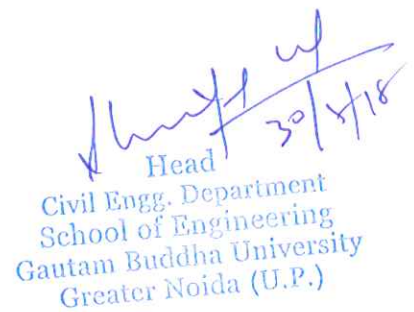 Head
Civil Engg. Department
School of Engineering
Gautam Buddha University
Greater Noida (U.P.)